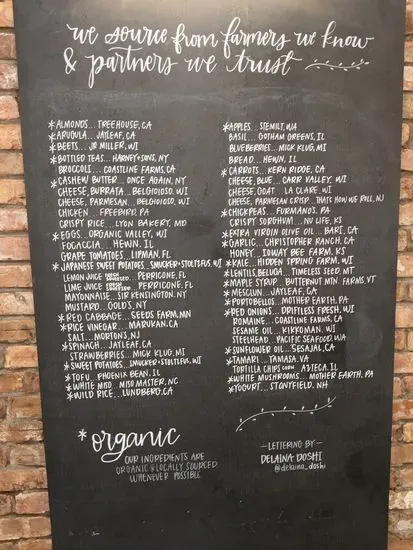 we source from farmers we know
& partners we trust
*ALMONDS... TREEHOUSE, CA
*ARUGULA... JAYLEAF, CA
*BEETS... JD MILLER, WI
*BOTTLED TEAS... HARNEY+SONS, NY
BROCCOLI... COASTLINE FARMS, CA
*CASHEW BUTTER... ONCE AGAIN, NY
CHEESE, BURRATA... BELGIOIOSO, WI
CHEESE, PARMESAN... BELGIOIOSO, WI
CHICKEN... FREEBIRD, PA
CRISPY RICE... LYON BAKERY, MD
*EGGS... ORGANIC VALLEY, WI
FOGACCIA... HEWN, IL
GRAPE TOMATOES... LIPMAN, FL
*JAPANESE SWEET POTATOES... SMUCKER+STOLTSFUS, WI
LEMON JUICE PERRICONE, FL
LIME JUICE PERRICONE, FL
MAYONNAISE... SIR KENSINGTON, NY
MUSTARD... GOLDS, NY
*RED CABBAGE... SEEDS FARM, MN
*RICE VINEGAR... MARUKAN, CA
SALT... MORTON'S, NJ
*SPINACH... JAYLEAF, CA
STRAWBERRIES... MICK KLUG, MI
*SWEET POTATOES... SMUCKER+STOLTSFUS, WI
*TOFU... PHOENIX BEAN, IL
*WHITE MISO... MISO MASTER, NC
*WILD RICE... LUNDBERG, CA
*APPLES... STEMILT, WA
BASIL... GOTHAM GREENS, IL
BLUEBERRIES... MICK KLUG, MI
BREAD... HEWN, IL
*CARROTS... KERN RIDGE, CA
CHEESE, BLUE... CARR VALLEY, WI
CHEESE, GOAT... LA CLARE, WI
CHEESE, PARMESAN CRISP... THATS HOW WE ROLL, NJ
*CHICKPEAS... FURMANO, PA
CRISPY SORGHUM... NU LIFE, KS
*EXTRA VIRGIN OLIVE OIL... BARI, CA
*GARLIC... CHRISTOPHER RANCH, CA
HONEY... IUWAY BEE FARM, KS
*KALE... HIDDEN SPRING FARM, WI
*LENTILS, BELUGA... TIMELESS SEED, MT
*MAPLE SYRUP... BUTTERNUT MTN. FARMS, VT
*MESCLUN... JAYLEAF, CA
*PORTOBELLOS... MOTHER EARTH, PA
*RED ONIONS... DRIFTLESS FRESH, WI
ROMAINE... COASTLINE FARMS, CA
SESAME OIL... KIKKOMAN, WI
STEELHEAD... PACIFIC SEAFOOD, WA
*SUNFLOWER OIL... SESAJAL, CA
*TAMARI... TAMASA, VA
TORTILLA CHIPS CORN AZTECA, IL
*WHITE MUSHROOMS... MOTHER EARTH, PA
*YOGURT... STONYFIELD, NH
*organic
OUR INGREDIENTS ARE
ORGANIC & LOCALLY SOURCED
WHENEVER POSSIBLE
—LETTERING BY—
DELAINA DOSHI
@delaina_doshi